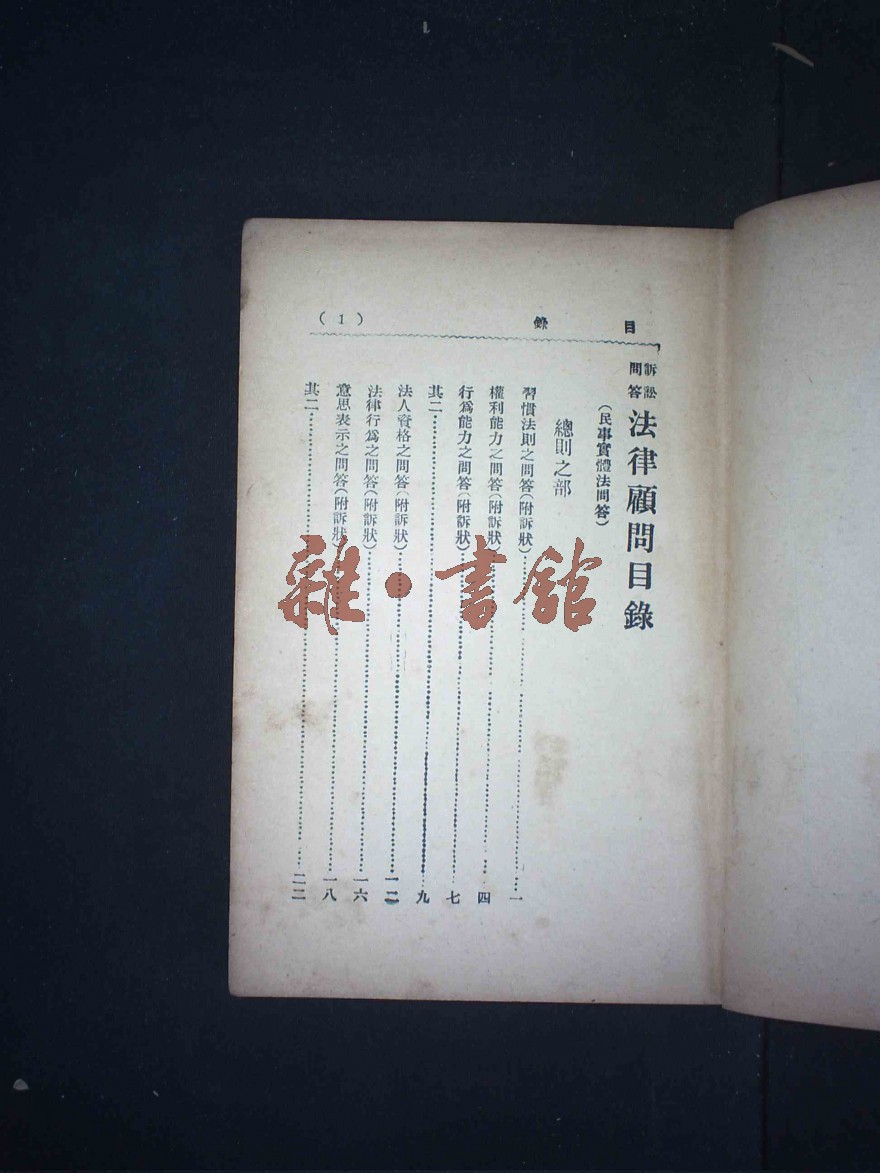 目錄
(1)
訴訟問答 法律顧問目錄
(民事實體法問答)
總則之部
習慣法則之問答(附訴狀)……一
權利能力之問答(附訴狀)……四
行爲能力之問答(附訴狀)……七
其二……九
法人資格之問答(附訴狀)……一二
法律行爲之問答(附訴狀)……一六
意思表示之問答(附訴狀)……一八
其二……二二
雜·書舘